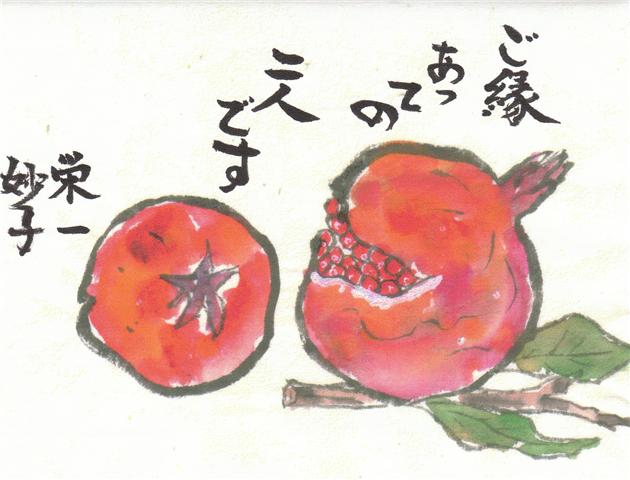 ご縁
あっ
ての
二人
です
栄一
妙子